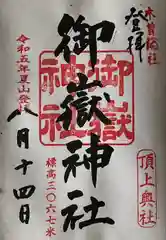 木曽御嶽
登拝
御嶽神社
御嶽神社
令和五年夏山登拝
八月十四日
標高三〇六七米
頂上奥社